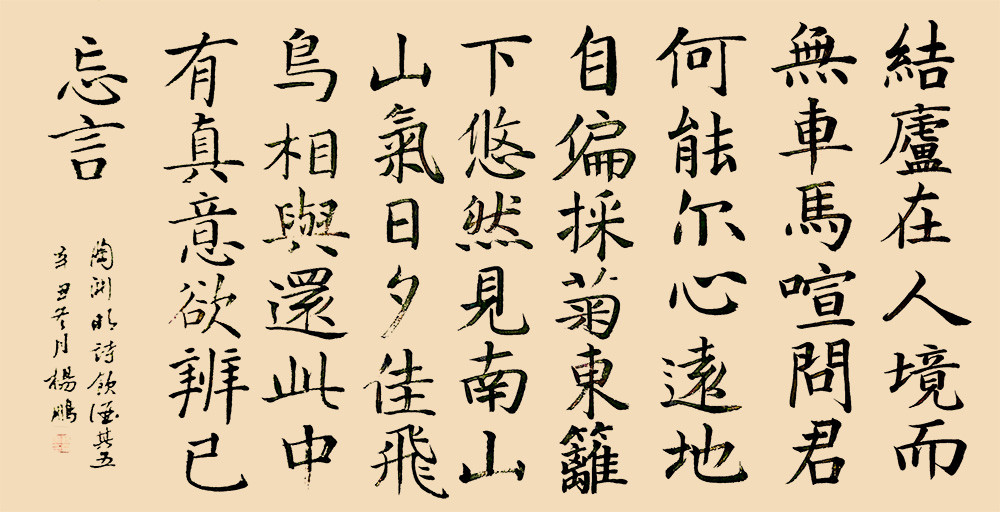 結廬在人境而
無車馬喧問君
何能尔心遠地
自偏採菊東籬
下悠然見南山
山氣日夕佳飛
鳥相與還此中
有真意欲辨已
忘言
陶渊明詩飲酒其五
辛丑冬月楊鵬